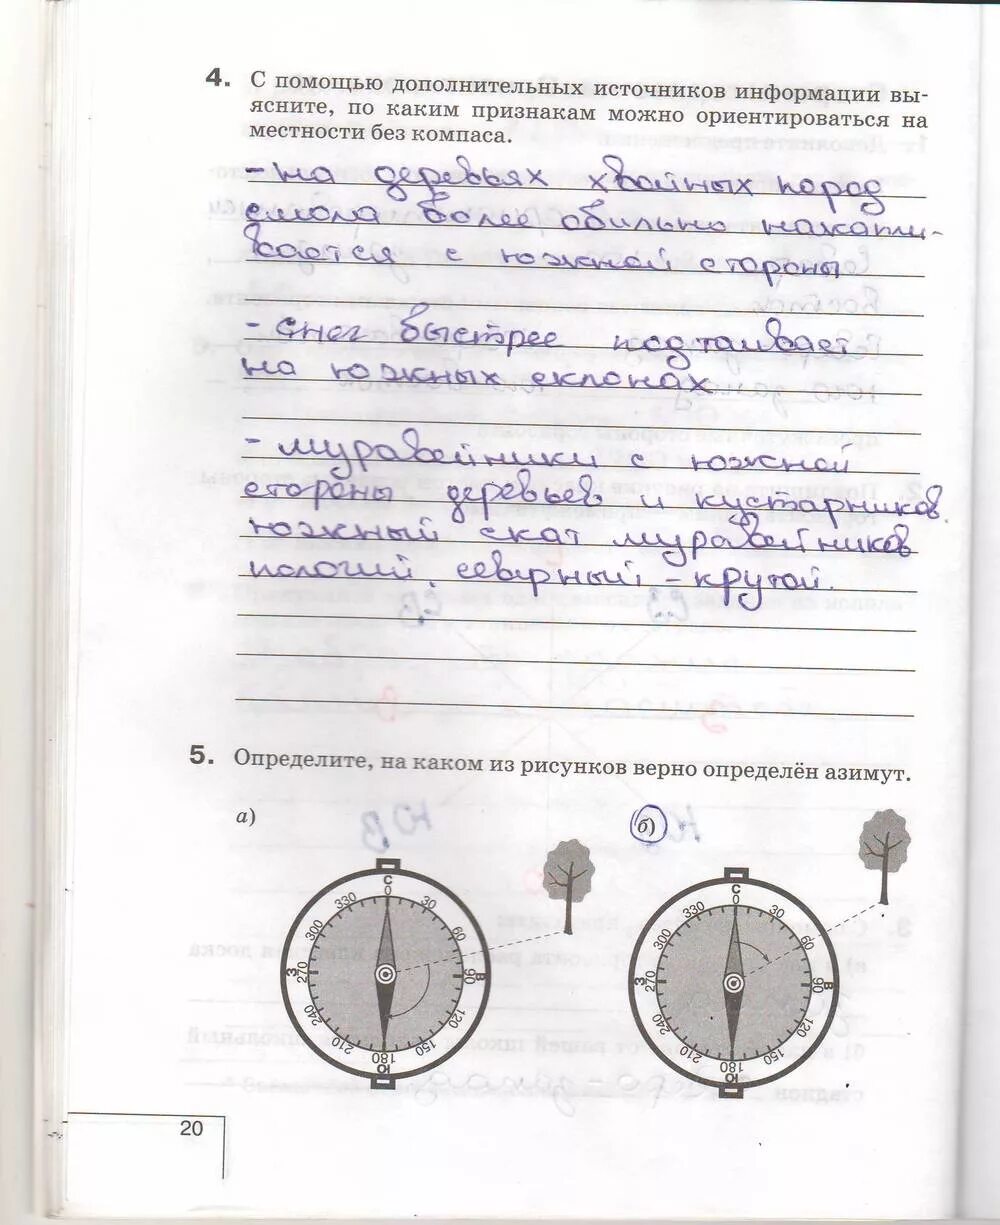 4. С помощью дополнительных источников информации вы-
ясните, по каким признакам можно ориентироваться на
местности без компаса.
- на деревьях хвойных пород
смола более обильно накапли-
вается с южной стороны
- снег быстрее подтаивает
на южных склонах
- муравейники с южной
стороны деревьев и кустарников.
южный скат муравейников
пологий, северный - крутой.
5. Определите, на каком из рисунков верно определён азимут.
а)
б)
С
0
30
60
В
90
120
150
180
Ю
210
240
З
270
300
330
С
0
30
60
В
90
120
150
180
Ю
210
240
З
270
300
330
20